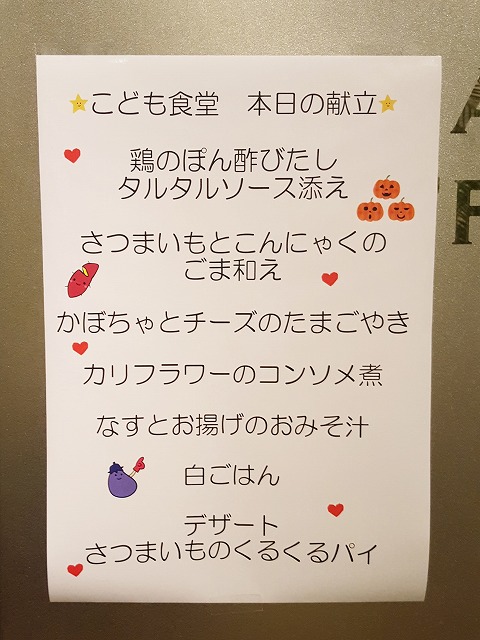 こども食堂　本日の献立
鶏のぽん酢びたし
タルタルソース添え
さつまいもとこんにゃくの
ごま和え
かぼちゃとチーズのたまごやき
カリフラワーのコンソメ煮
なすとお揚げのおみそ汁
白ごはん
デザート
さつまいものくるくるパイ